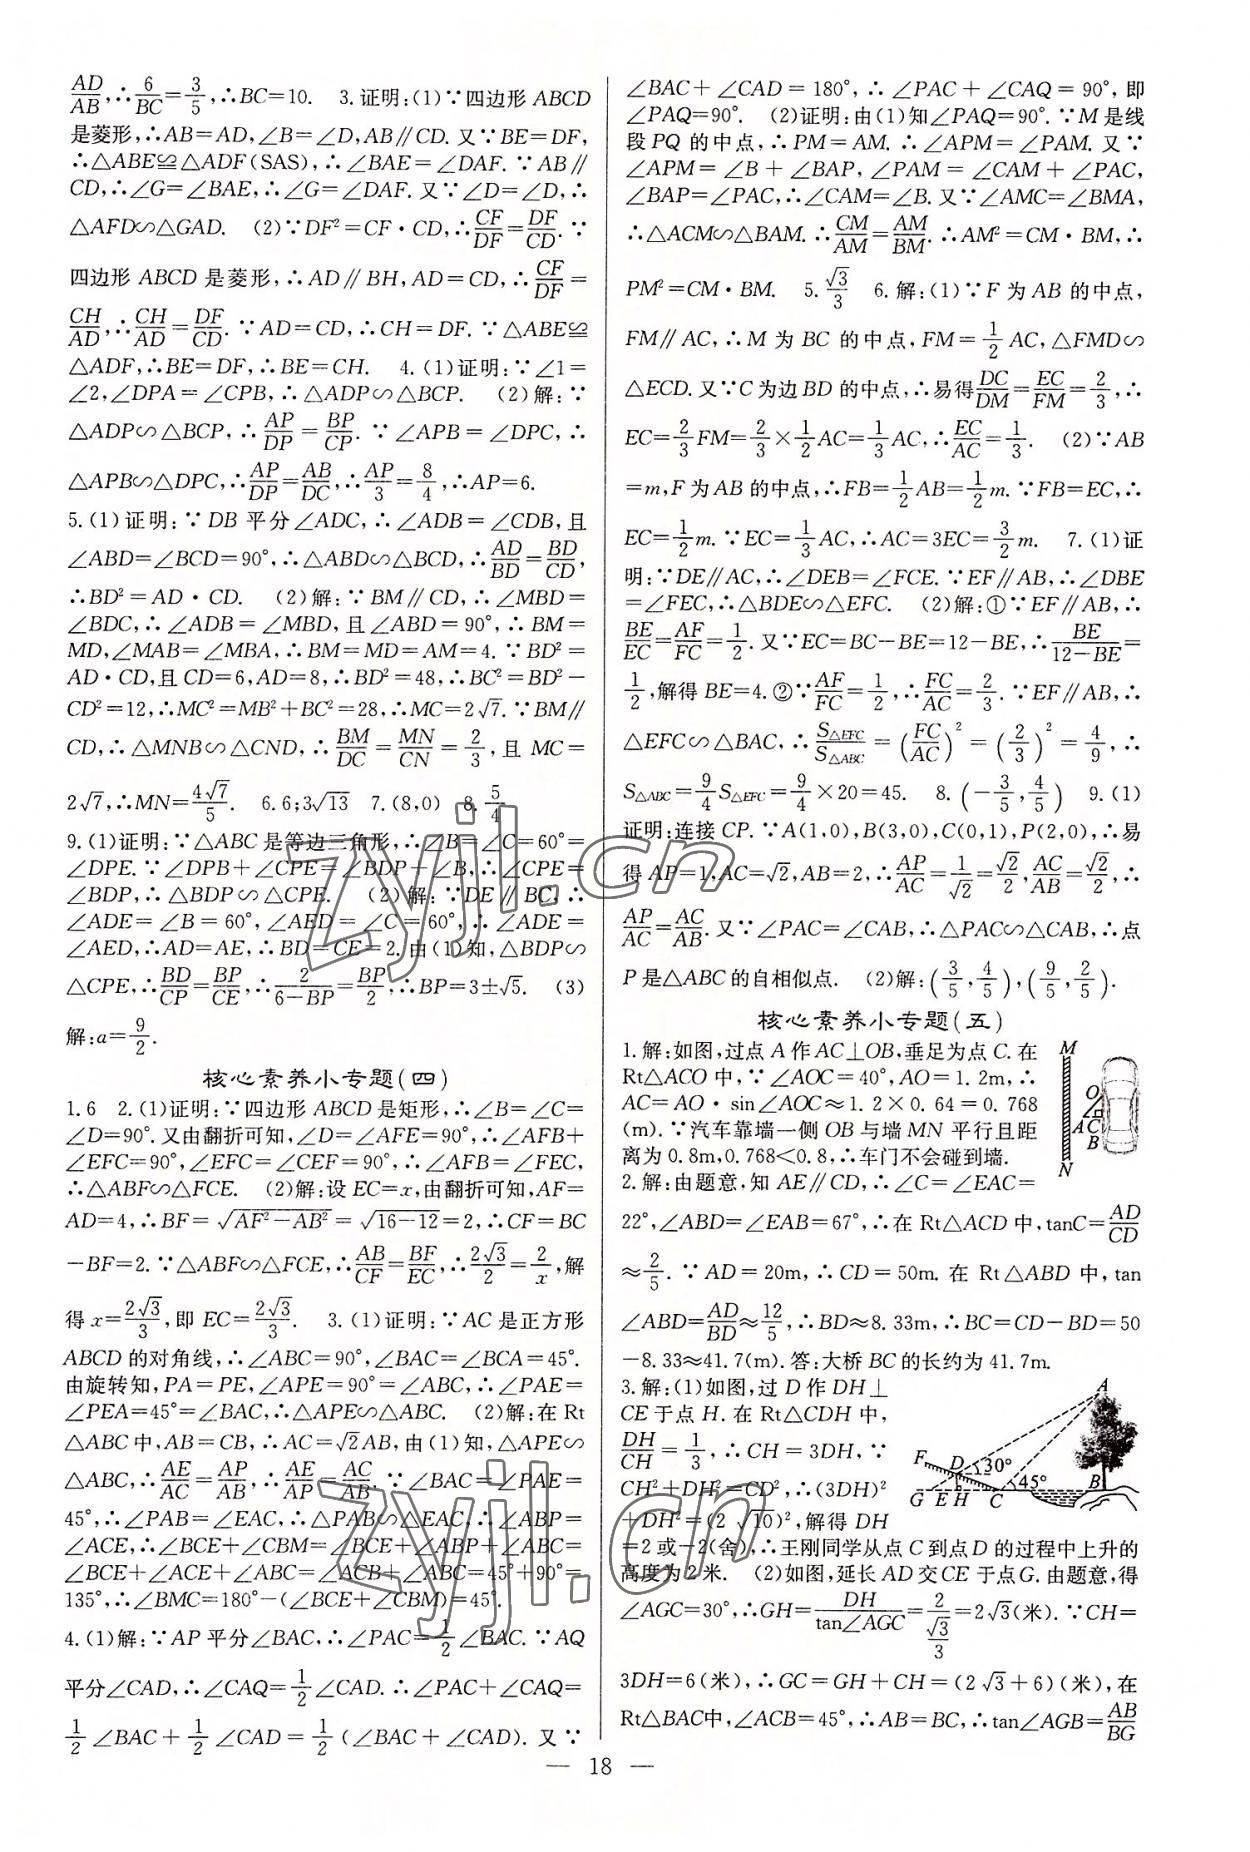 AD/AB,∴6/BC=3/5,∴BC=10. 3.证明:(1)∵四边形ABCD
是菱形,∴AB=AD,∠B=∠D,AB∥CD.又∵BE=DF,
∴△ABE≌△ADF(SAS),∴∠BAE=∠DAF.∵AB∥
CD,∴∠G=∠BAE,∴∠G=∠DAF.又∵∠D=∠D,∴
△AFD∽△GAD. (2)∵DF²=CF·CD,∴CF/DF=DF/CD.∵
四边形ABCD是菱形,∴AD∥BH,AD=CD,∴CF/DF=
CH/AD,∴CH/AD=DF/CD.∵AD=CD,∴CH=DF.∵△ABE≌
△ADF,∴BE=DF,∴BE=CH. 4.(1)证明:∵∠1=
∠2,∠DPA=∠CPB,∴△ADP∽△BCP. (2)解:∵
△ADP∽△BCP,∴AP/DP=BP/CP.∵∠APB=∠DPC,∴
△APB∽△DPC,∴AP/DP=AB/DC,∴AP/3=8/4,∴AP=6.
5.(1)证明:∵DB平分∠ADC,∴∠ADB=∠CDB,且
∠ABD=∠BCD=90°,∴△ABD∽△BCD,∴AD/BD=BD/CD,
∴BD²=AD·CD. (2)解:∵BM∥CD,∴∠MBD=
∠BDC,∴∠ADB=∠MBD,且∠ABD=90°,∴BM=
MD,∠MAB=∠MBA,∴BM=MD=AM=4.∵BD²=
AD·CD,且CD=6,AD=8,∴BD²=48,∴BC²=BD²-
CD²=12,∴MC²=MB²+BC²=28,∴MC=2√7.∵BM∥
CD,∴△MNB∽△CND,∴BM/DC=MN/CN=2/3,且MC=
2√7,∴MN=4√7/5. 6.6;3√13 7.(8,0) 8.5/4
9.(1)证明:∵△ABC是等边三角形,∴∠B=∠C=60°=
∠DPE.∵∠DPB+∠CPE=∠BDP+∠B,∴∠CPE=
∠BDP,∴△BDP∽△CPE. (2)解:∵DE∥BC,∴
∠ADE=∠B=60°,∠AED=∠C=60°,∴∠ADE=
∠AED,∴AD=AE,∴BD=CE=2.由(1)知,△BDP∽
△CPE,∴BD/CP=BP/CE,∴2/(6-BP)=BP/2,∴BP=3±√5. (3)
解:a=9/2.
核心素养小专题(四)
1.6 2.(1)证明:∵四边形ABCD是矩形,∴∠B=∠C=
∠D=90°.又由翻折可知,∠D=∠AFE=90°,∴∠AFB+
∠EFC=90°,∠EFC+∠CEF=90°,∴∠AFB=∠FEC,
∴△ABF∽△FCE. (2)解:设EC=x,由翻折可知,AF=
AD=4,∴BF=√(AF²-AB²)=√(16-12)=2,∴CF=BC
-BF=2.∵△ABF∽△FCE,∴AB/CF=BF/EC,∴2√3/2=2/x,解
得x=2√3/3,即EC=2√3/3. 3.(1)证明:∵AC是正方形
ABCD的对角线,∴∠ABC=90°,∠BAC=∠BCA=45°.
由旋转知,PA=PE,∠APE=90°=∠ABC,∴∠PAE=
∠PEA=45°=∠BAC,∴△APE∽△ABC. (2)解:在Rt
△ABC中,AB=CB,∴AC=√2AB,由(1)知,△APE∽
△ABC,∴AE/AC=AP/AB,∴AE/AP=AC/AB.∵∠BAC=∠PAE=
45°,∴∠PAB=∠EAC,∴△PAB∽△EAC,∴∠ABP=
∠ACE,∴∠BCE+∠CBM=∠BCE+∠ABP+∠ABC=
∠BCE+∠ACE+∠ABC=∠ACB+∠ABC=45°+90°=
135°,∴∠BMC=180°-(∠BCE+∠CBM)=45°.
4.(1)解:∵AP平分∠BAC,∴∠PAC=1/2∠BAC.∵AQ
平分∠CAD,∴∠CAQ=1/2∠CAD.∴∠PAC+∠CAQ=
1/2∠BAC+1/2∠CAD=1/2(∠BAC+∠CAD).又∵
∠BAC+∠CAD=180°,∴∠PAC+∠CAQ=90°,即
∠PAQ=90°. (2)证明:由(1)知∠PAQ=90°.∵M是线
段PQ的中点,∴PM=AM.∴∠APM=∠PAM.又∵
∠APM=∠B+∠BAP,∠PAM=∠CAM+∠PAC,
∠BAP=∠PAC,∴∠CAM=∠B.又∵∠AMC=∠BMA,
∴△ACM∽△BAM.∴CM/AM=AM/BM.∴AM²=CM·BM,∴
PM²=CM·BM. 5.√3/3 6.解:(1)∵F为AB的中点,
FM∥AC,∴M为BC的中点,FM=1/2AC,△FMD∽
△ECD.又∵C为边BD的中点,∴易得DC/DM=EC/FM=2/3,∴
EC=2/3FM=2/3×1/2AC=1/3AC,∴EC/AC=1/3. (2)∵AB
=m,F为AB的中点,∴FB=1/2AB=1/2m.∵FB=EC,∴
EC=1/2m.∵EC=1/3AC,∴AC=3EC=3/2m. 7.(1)证
明:∵DE∥AC,∴∠DEB=∠FCE.∵EF∥AB,∴∠DBE
=∠FEC,∴△BDE∽△EFC. (2)解:①∵EF∥AB,∴
BE/EC=AF/FC=1/2.又∵EC=BC-BE=12-BE,∴BE/(12-BE)=
1/2,解得BE=4.②∵AF/FC=1/2,∴FC/AC=2/3.∵EF∥AB,∴
△EFC∽△BAC,∴S△EFC/S△ABC=(FC/AC)²=(2/3)²=4/9,∴
S△ABC=9/4S△EFC=9/4×20=45. 8.(-3/5,4/5) 9.(1)
证明:连接CP.∵A(1,0),B(3,0),C(0,1),P(2,0),∴易
得AP=1,AC=√2,AB=2,∴AP/AC=1/√2=√2/2,AC/AB=√2/2,∴
AP/AC=AC/AB.又∵∠PAC=∠CAB,∴△PAC∽△CAB,∴点
P是△ABC的自相似点. (2)解:(3/5,4/5),(9/5,2/5).
核心素养小专题(五)
1.解:如图,过点A作AC⊥OB,垂足为点C.在
Rt△ACO中,∵∠AOC=40°,AO=1.2m,∴
AC=AO·sin∠AOC≈1.2×0.64=0.768
(m).∵汽车靠墙一侧OB与墙MN平行且距
离为0.8m,0.768<0.8,∴车门不会碰到墙.
M
O
A C
B
N
2.解:由题意,知AE∥CD,∴∠C=∠EAC=
22°,∠ABD=∠EAB=67°,∴在Rt△ACD中,tanC=AD/CD
≈2/5.∵AD=20m,∴CD=50m.在Rt△ABD中,tan
∠ABD=AD/BD≈12/5,∴BD≈8.33m,∴BC=CD-BD=50
-8.33≈41.7(m).答:大桥BC的长约为41.7m.
3.解:(1)如图,过D作DH⊥
CE于点H.在Rt△CDH中,
DH/CH=1/3,∴CH=3DH,∵
CH²+DH²=CD²,∴(3DH)²
+DH²=(2√10)²,解得DH
A
F D 30°
45° B
G E H C
=2或-2(舍),∴王刚同学从点C到点D的过程中上升的
高度为2米. (2)如图,延长AD交CE于点G.由题意,得
∠AGC=30°,∴GH=DH/tan∠AGC=2/(√3/3)=2√3(米).∵CH=
3DH=6(米),∴GC=GH+CH=(2√3+6)(米),在
Rt△BAC中,∠ACB=45°,∴AB=BC,∴tan∠AGB=AB/BG
— 18 —
zyjl.cn
zyjl.cn